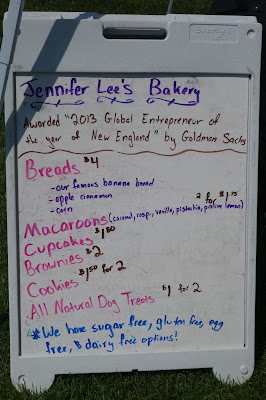 Jennifer Lee's Bakery
Awarded "2013 Global Entrepreneur of
the year of New England" by Goldman Sachs
Breads $4
- our famous banana bread
- apple cinnamon
- corn
2 for $1.75
Macaroons (caramel, rasp., vanilla, pistachio, praline, lemon)
Cupcakes $1.50
Brownies $2
Cookies $1.50 for 2
All Natural Dog Treats $1 for 2
* We have sugar free, gluten free, egg
free, & dairy free options!